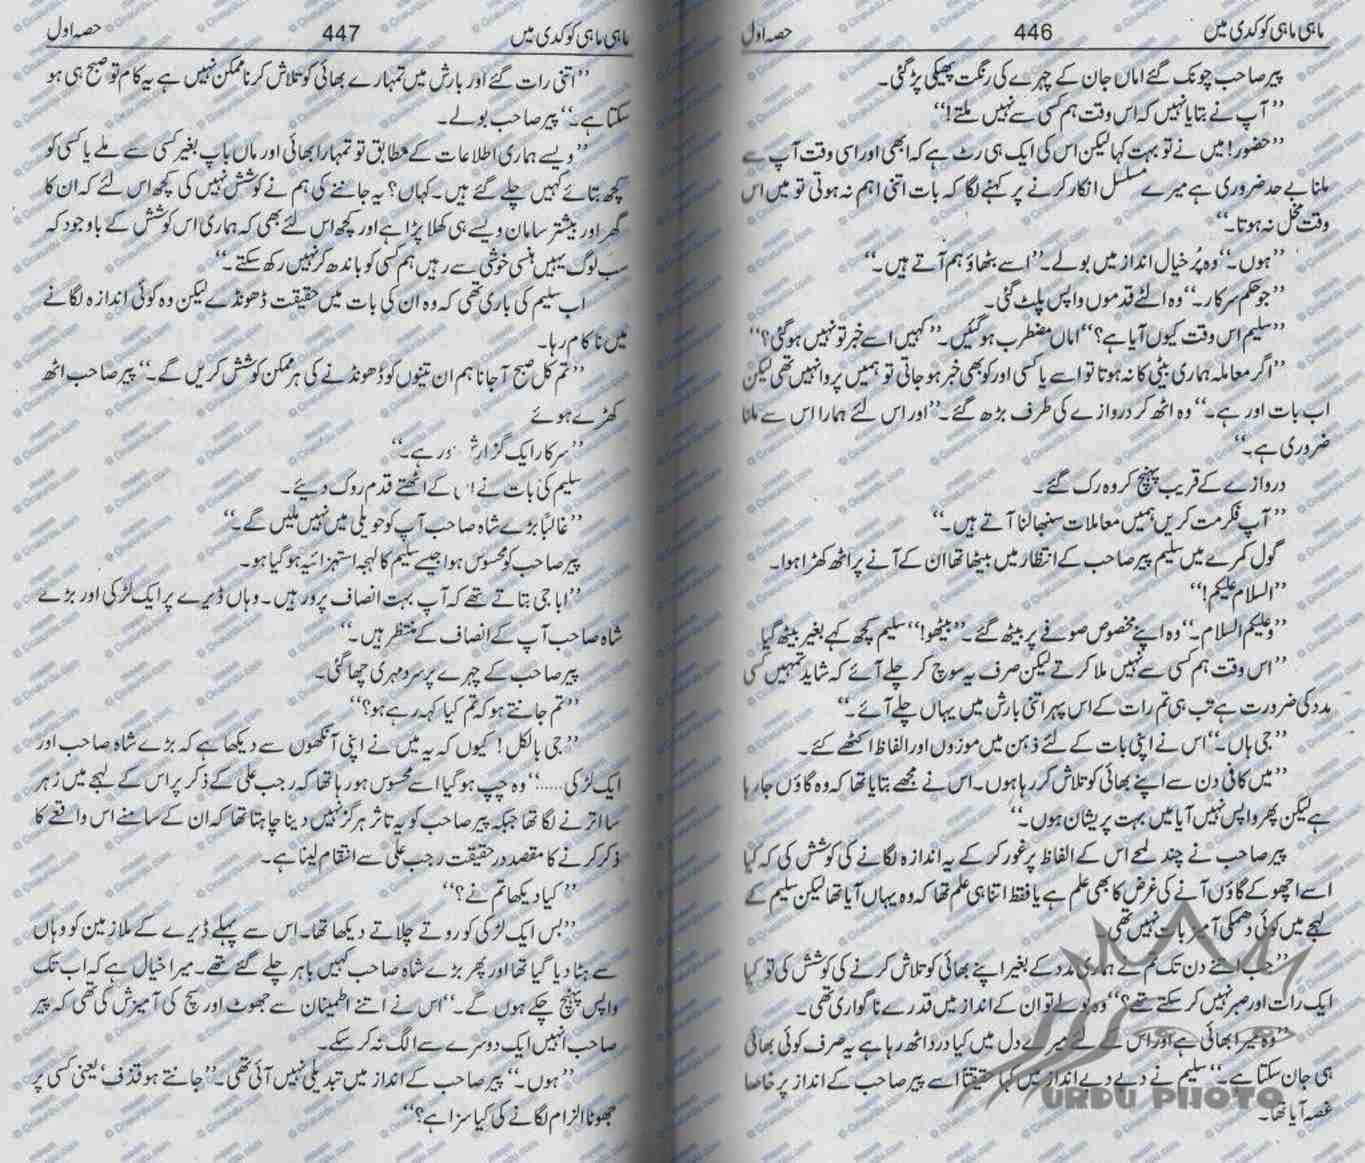 ماہی ماہی کوکدی میں 446 حصہ اول
پیر صاحب چونک گئے اماں جان کے چہرے کی رنگت پھیکی پڑ گئی۔
’’آپ نے بتایا نہیں کہ اس وقت ہم کسی سے نہیں ملتے!‘‘
’’حضور! میں نے تو بہت کہا لیکن اس کی ایک ہی رٹ ہے کہ ابھی اور اسی وقت آپ سے
ملنا بے حد ضروری ہے میرے مسلسل انکار کرنے پر کہنے لگا کہ بات اتنی اہم نہ ہوتی تو میں اس
وقت مخل نہ ہوتا۔‘‘
’’ہوں۔‘‘ وہ پُر خیال انداز میں بولے۔ ’’اسے بٹھاؤ ہم آتے ہیں۔‘‘
’’جو حکم سرکار۔‘‘ وہ الٹے قدموں واپس پلٹ گئی۔
’’سلیم اس وقت کیوں آیا ہے؟‘‘ اماں مضطرب ہو گئیں۔ ’’کہیں اسے خبر تو نہیں ہو گئی؟‘‘
’’اگر معاملہ ہماری بیٹی کا نہ ہوتا تو اسے یا کسی اور کو بھی خبر ہو جاتی تو ہمیں پروا نہیں تھی لیکن
اب بات اور ہے۔‘‘ وہ اٹھ کر دروازے کی طرف بڑھ گئے۔ ’’اور اس لئے ہمارا اس سے ملنا
ضروری ہے۔‘‘
دروازے کے قریب پہنچ کر وہ رک گئے۔
’’آپ فکر مت کریں ہمیں معاملات سنبھالنا آتے ہیں۔‘‘
گول کمرے میں سلیم پیر صاحب کے انتظار میں بیٹھا تھا ان کے آنے پر اٹھ کھڑا ہوا۔
’’السلام علیکم!‘‘
’’وعلیکم السلام۔‘‘ وہ اپنے مخصوص صوفے پر بیٹھ گئے۔ ’’بیٹھو!‘‘ سلیم کچھ کہے بغیر بیٹھ گیا
’’اس وقت ہم کسی سے نہیں ملا کرتے لیکن صرف یہ سوچ کر چلے آئے کہ شاید تمہیں کسی
مدد کی ضرورت ہے تب ہی تم رات کے اس پہر اتنی بارش میں یہاں چلے آئے۔‘‘
’’جی ہاں۔‘‘ اس نے اپنی بات کے لئے ذہن میں موزوں اور الفاظ اکٹھے کئے۔
’’میں کافی دن سے اپنے بھائی کو تلاش کر رہا ہوں۔ اس نے مجھے بتایا تھا کہ وہ گاؤں جا رہا
ہے لیکن پھر واپس نہیں آیا میں بہت پریشان ہوں۔‘‘
پیر صاحب نے چند لمحے اس کے الفاظ پر غور کر کے یہ اندازہ لگانے کی کوشش کی کہ کیا
اسے اچھو کے گاؤں آنے کی غرض کا بھی علم ہے یا فقط اتنا ہی علم تھا کہ وہ یہاں آیا تھا لیکن سلیم کے
لہجے میں کوئی دھمکی آمیز بات نہیں تھی۔
’’جب اتنے دن تک تم نے ہماری مدد کے بغیر اپنے بھائی کو تلاش کرنے کی کوشش کی تو کیا
ایک رات اور صبر نہیں کر سکتے تھے؟‘‘ وہ بولے تو ان کے انداز میں قدرے ناگواری تھی۔
’’وہ میرا بھائی ہے اور اس کے لئے میرے دل میں کیا درد اٹھ رہا ہے یہ صرف کوئی بھائی
ہی جان سکتا ہے۔‘‘ سلیم نے دبے دبے انداز میں کہا حقیقتاً اسے پیر صاحب کے انداز پر خاصا
غصہ آیا تھا۔
URDU PHOTO
ماہی ماہی کوکدی میں 447 حصہ اول
’’اتنی رات گئے اور بارش میں تمہارے بھائی کو تلاش کرنا ممکن نہیں ہے یہ کام تو صبح ہی ہو
سکتا ہے۔‘‘ پیر صاحب بولے۔
’’ویسے ہماری اطلاعات کے مطابق تو تمہارا بھائی اور ماں باپ بغیر کسی سے ملے یا کسی کو
کچھ بتائے کہیں چلے گئے ہیں۔ کہاں؟ یہ جاننے کی ہم نے کوشش نہیں کی کچھ اس لئے کہ ان کا
گھر اور بیشتر سامان ویسے ہی کھلا پڑا ہے اور کچھ اس لئے بھی کہ ہماری اس کوشش کے باوجود کہ
سب لوگ یہیں ہنسی خوشی سے رہیں ہم کسی کو باندھ کر نہیں رکھ سکتے۔‘‘
اب سلیم کی باری تھی کہ وہ ان کی بات میں حقیقت ڈھونڈے لیکن وہ کوئی اندازہ لگانے
میں ناکام رہا۔
’’تم کل صبح آ جانا ہم ان تینوں کو ڈھونڈنے کی ہر ممکن کوشش کریں گے۔‘‘ پیر صاحب اٹھ
کھڑے ہوئے
’’سرکار ایک گزارش اور ہے۔‘‘
سلیم کی بات نے ان کے اٹھتے قدم روک دیئے۔
’’غالباً بڑے شاہ صاحب آپ کو حویلی میں نہیں ملیں گے۔‘‘
پیر صاحب کو محسوس ہوا جیسے سلیم کا لہجہ استہزائیہ ہو گیا ہو۔
’’ابا جی بتاتے تھے کہ آپ بہت انصاف پرور ہیں۔ وہاں ڈیرے پر ایک لڑکی اور بڑے
شاہ صاحب آپ کے انصاف کے منتظر ہیں۔‘‘
پیر صاحب کے چہرے پر سرد مہری چھا گئی۔
’’تم جانتے ہو کہ تم کیا کہہ رہے ہو؟‘‘
’’جی بالکل! کیوں کہ یہ میں نے اپنی آنکھوں سے دیکھا ہے کہ بڑے شاہ صاحب اور
ایک لڑکی......‘‘ وہ چپ ہو گیا اسے محسوس ہو رہا تھا کہ رجب علی کے ذکر پر اس کے لہجے میں زہر
سا اترنے لگا تھا جبکہ پیر صاحب کو یہ تاثر ہرگز نہیں دینا چاہتا تھا کہ ان کے سامنے اس واقعے کا
ذکر کرنے کا مقصد درحقیقت رجب علی سے انتقام لینا ہے۔
’’کیا دیکھا تم نے؟‘‘
’’بس ایک لڑکی کو روتے چلاتے دیکھا تھا۔ اس سے پہلے ڈیرے کے ملازمین کو وہاں
سے ہٹا دیا گیا تھا اور پھر بڑے شاہ صاحب کہیں باہر چلے گئے تھے۔ میرا خیال ہے کہ اب تک
واپس پہنچ چکے ہوں گے۔‘‘ اس نے اتنے اطمینان سے جھوٹ اور سچ کی آمیزش کی تھی کہ پیر
صاحب انہیں ایک دوسرے سے الگ نہ کر سکے۔
’’ہوں۔‘‘ پیر صاحب کے انداز میں تبدیلی نہیں آئی تھی۔ ’’جانتے ہو قذف‘ یعنی کسی پر
جھوٹا الزام لگانے کی کیا سزا ہے؟‘‘